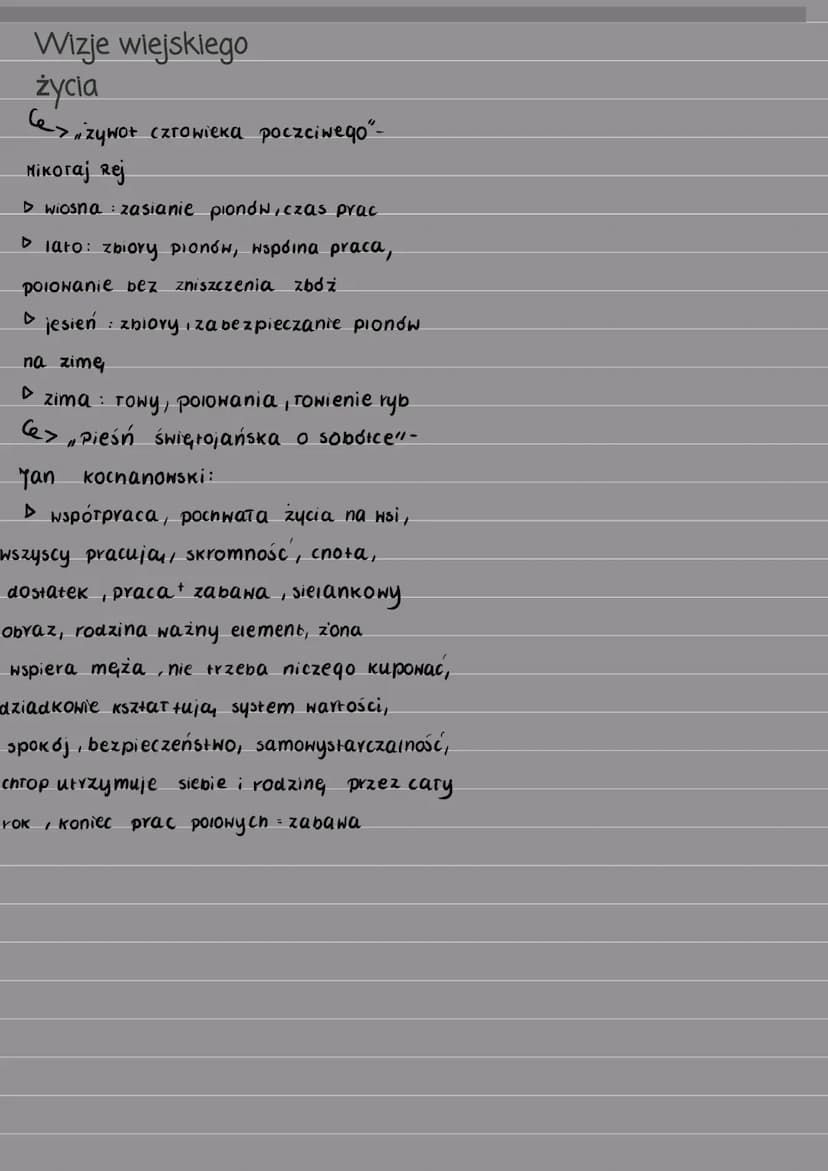 Wizje wiejskiego
życia
„żywot człowieka poczciwego"-
Mikołaj Rej
▷ wiosna : zasianie plonów, czas prac
▷ lato: zbiory plonów, wspólna praca,
polowanie bez zniszczenia zbóż
▷ jesień : zbiory, zabezpieczanie plonów
na zimę
▷ zima : łowy, polowania, łowienie ryb
„Pieśń świętojańska o sobótce"-
Jan Kochanowski:
▷ współpraca, pochwała życia na wsi,
wszyscy pracują, skromność, cnota,
dostatek, praca + zabawa, sielankowy
obraz, rodzina ważny element, żona
wspiera męża, nie trzeba niczego kupować,
dziadkowie kształtują system wartości,
spokój, bezpieczeństwo, samowystarczalność,
chłop utrzymuje siebie i rodzinę przez cały
rok, koniec prac polowych = zabawa